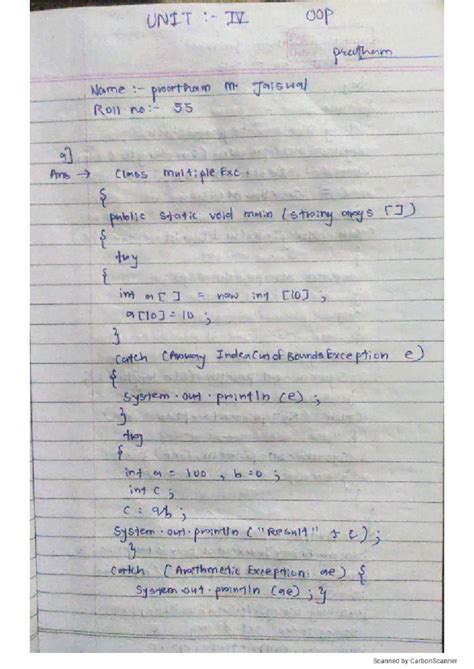 UNIT :- IV OOP
preetham
Name :- preetham M. Jaiswal
Roll no:- 55
a]
Ans → Class multiple Exc.
{
public static void main (string args [])
{
try
{
int a[ ] = new int [10] ;
a [10] = 10 ;
}
catch (Array Index Out of Bounds Exception e)
{
System.out.println (e) ;
}
try
{
int a = 100 , b = 0 ;
int c ;
c = a/b ;
System.out.println ("Result" + c) ;
}
catch (Arathmetic Exception ae) {
System.out.println (ae) ; }
Scanned by CarbonScanner